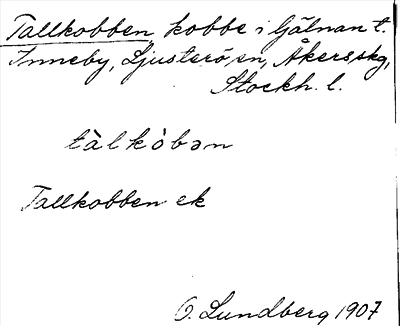 Tallkobben, kobbe i Gälnan t.
Inneby, Ljusterö sn, Åkers skg,
Stockh. l.
tàlkòbən
Tallkobben ek
O. Lundberg 1907